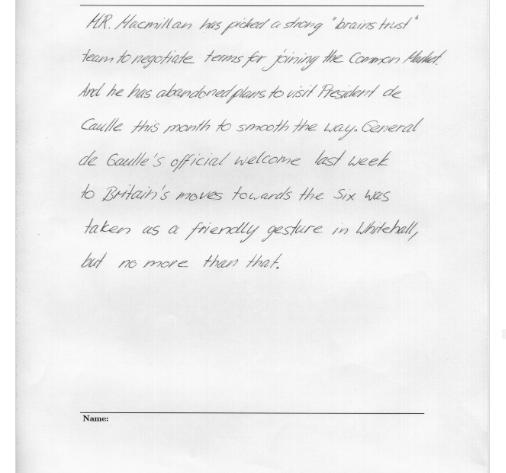 MR. Macmillan has picked a strong "brains trust"
team to negotiate terms for joining the Common Market.
And he has abandoned plans to visit President de
Gaulle this month to smooth the way. General
de Gaulle's official welcome last week
to Britain's moves towards the Six was
taken as a friendly gesture in Whitehall,
but no more than that.
Name: